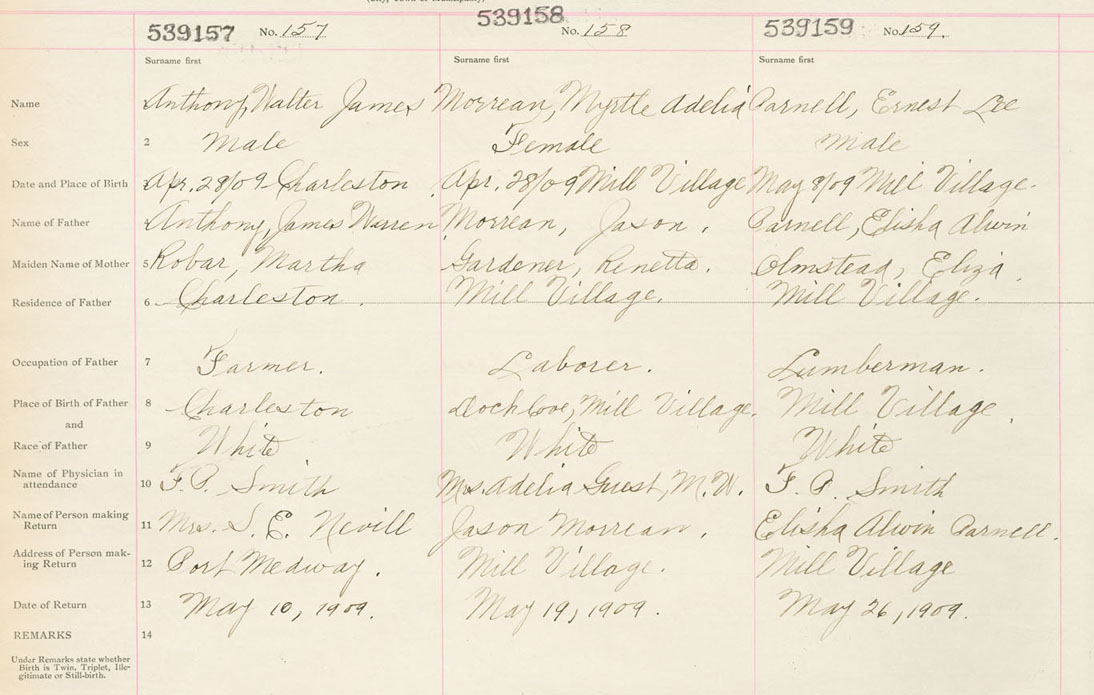 539157 No. 157 539158 No. 158 539159 No. 159.
Surname first Surname first Surname first
Name Anthony, Walter James Morrean, Myrtle Adelia Parnell, Ernest Lee
Sex 2 Male Female Male
Date and Place of Birth Apr. 28/09 Charleston Apr. 28/09 Mill Village May 8/09 Mill Village.
Name of Father Anthony, James Warren Morrean, Jason. Parnell, Elisha Alwin
Maiden Name of Mother 5 Robar, Martha Gardener, Renetta. Olmstead, Eliza.
Residence of Father 6 Charleston. Mill Village. Mill Village.
Occupation of Father 7 Farmer. Laborer. Lumberman.
Place of Birth of Father 8 Charleston Cove, Mill Village. Mill Village.
and
Race of Father 9 White White White
Name of Physician in
attendance 10 F. P. Smith Mrs. Adelia Guest, M.W. F. P. Smith
Name of Person making
Return 11 Mrs. S. E. Nevill Jason Morrean. Elisha Alwin Parnell.
Address of Person mak-
ing Return 12 Port Medway. Mill Village. Mill Village
Date of Return 13 May 10, 1909. May 19, 1909. May 26, 1909.
REMARKS 14
Under Remarks state whether
Birth is Twin, Triplet, Ille-
gitimate or Still-birth.